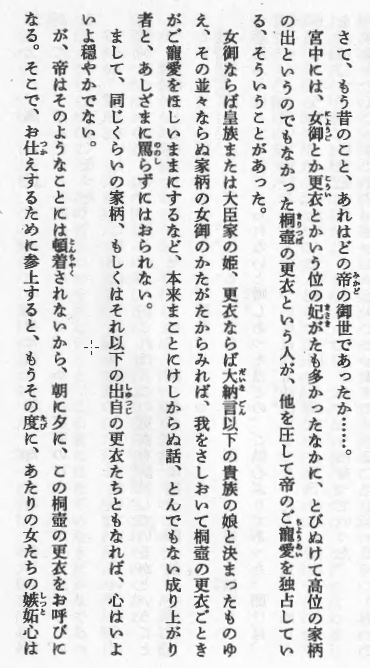 さて、もう昔のこと、あれはどの帝の御世であったか……。
宮中には、女御とか更衣とかいう位の妃がたも多かったなかに、とびぬけて高位の家柄
の出というのでもなかった桐壺の更衣という人が、他を圧して帝のご寵愛を独占してい
る、そういうことがあった。
女御ならば皇族または大臣家の姫、更衣ならば大納言以下の貴族の娘と決まったものゆ
え、その並々ならぬ家柄の女御のかたがたからみれば、我をさしおいて桐壺の更衣ごとき
がご寵愛をほしいままにするなど、本来まことにけしからぬ話、とんでもない成り上がり
者と、あしざまに罵らずにはおられない。
まして、同じくらいの家柄、もしくはそれ以下の出自の更衣たちともなれば、心はいよ
いよ穏やかでない。
が、帝はそのようなことには頓着されないから、朝に夕に、この桐壺の更衣をお呼びに
なる。そこで、お仕えするために参上すると、もうその度に、あたりの女たちの嫉妬心は